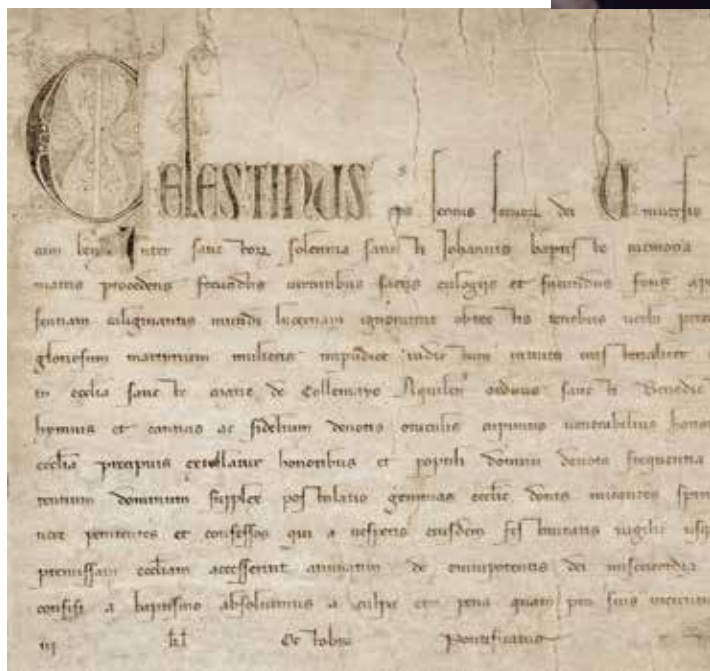 CELESTINUS eps servus servoꝝ dei Universis
am ben Inter sanctoꝝ solennia sancti Johannis baptiste memoria
matris procedens fecundus virtutibus sacris eulogiis et facundus fons apo
sentiam caliginantis mundi lucernam ignorantie obtectis tenebris verbi
gloriosum martyrium mulieris impudice indictum
in ecclia sancte marie de Collemayo Aquilen ordinis sancti Benedic
hymnis et canticis ac fidelium devotis oraculis cupimus venerabilius honor
ecclia precipuis extollatur honoribus et populi domini devota frequentia
rentium dominum supplex postulatio gemmas ecclie donis micantes spirit
vere penitentes et confessos qui a vesperis eiusdem festivitatis vigilie usq
premissam eccliam accesserint annuatim de omnipotentis dei misericordia
confisi a baptismo absolvimus a culpa et pena quam pro suis
iii kl Octobr Pontificatus